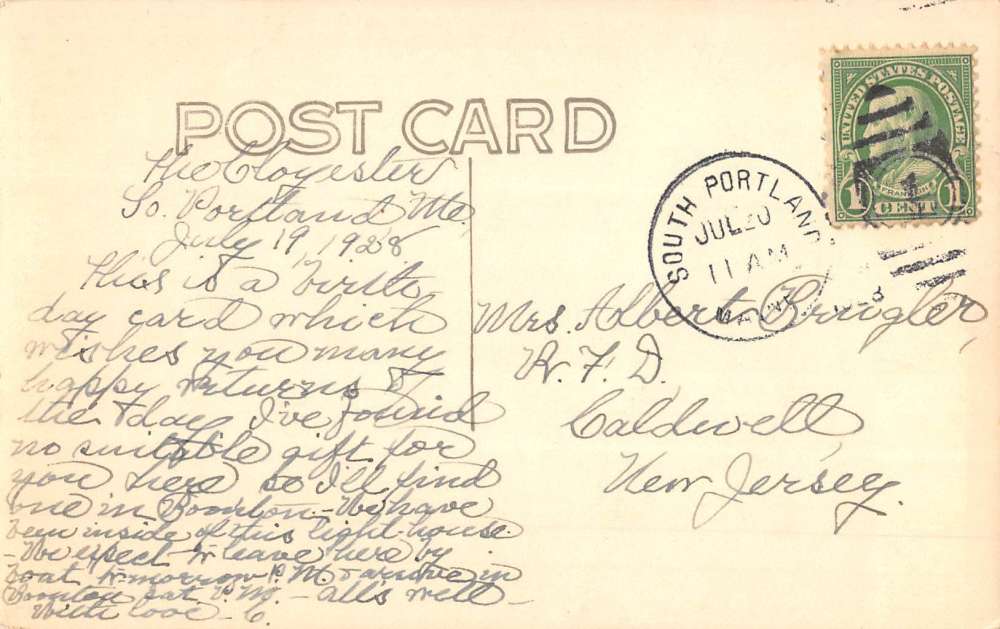 POST CARD
UNITED STATES POSTAGE
FRANKLIN
1 CENT 1
SOUTH PORTLAND
JUL 20
11 AM
MAINE
The
So. Portland, Me
July 19, 1928
This is a birth-
day card which
wishes you many
happy returns of
the day. I've found
no suitable gift for
you here so I'll find
one in Boonton - We have
been inside of this light house
- We expect to leave here by
boat to-morrow P.M. & arrive in
Boonton Sat P.M. - All's well -
With love - C.
Mrs. Albert
R. F. D.
Caldwell,
New Jersey.